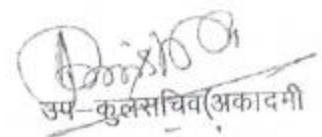 उप–कुलसचिव(अकादमी